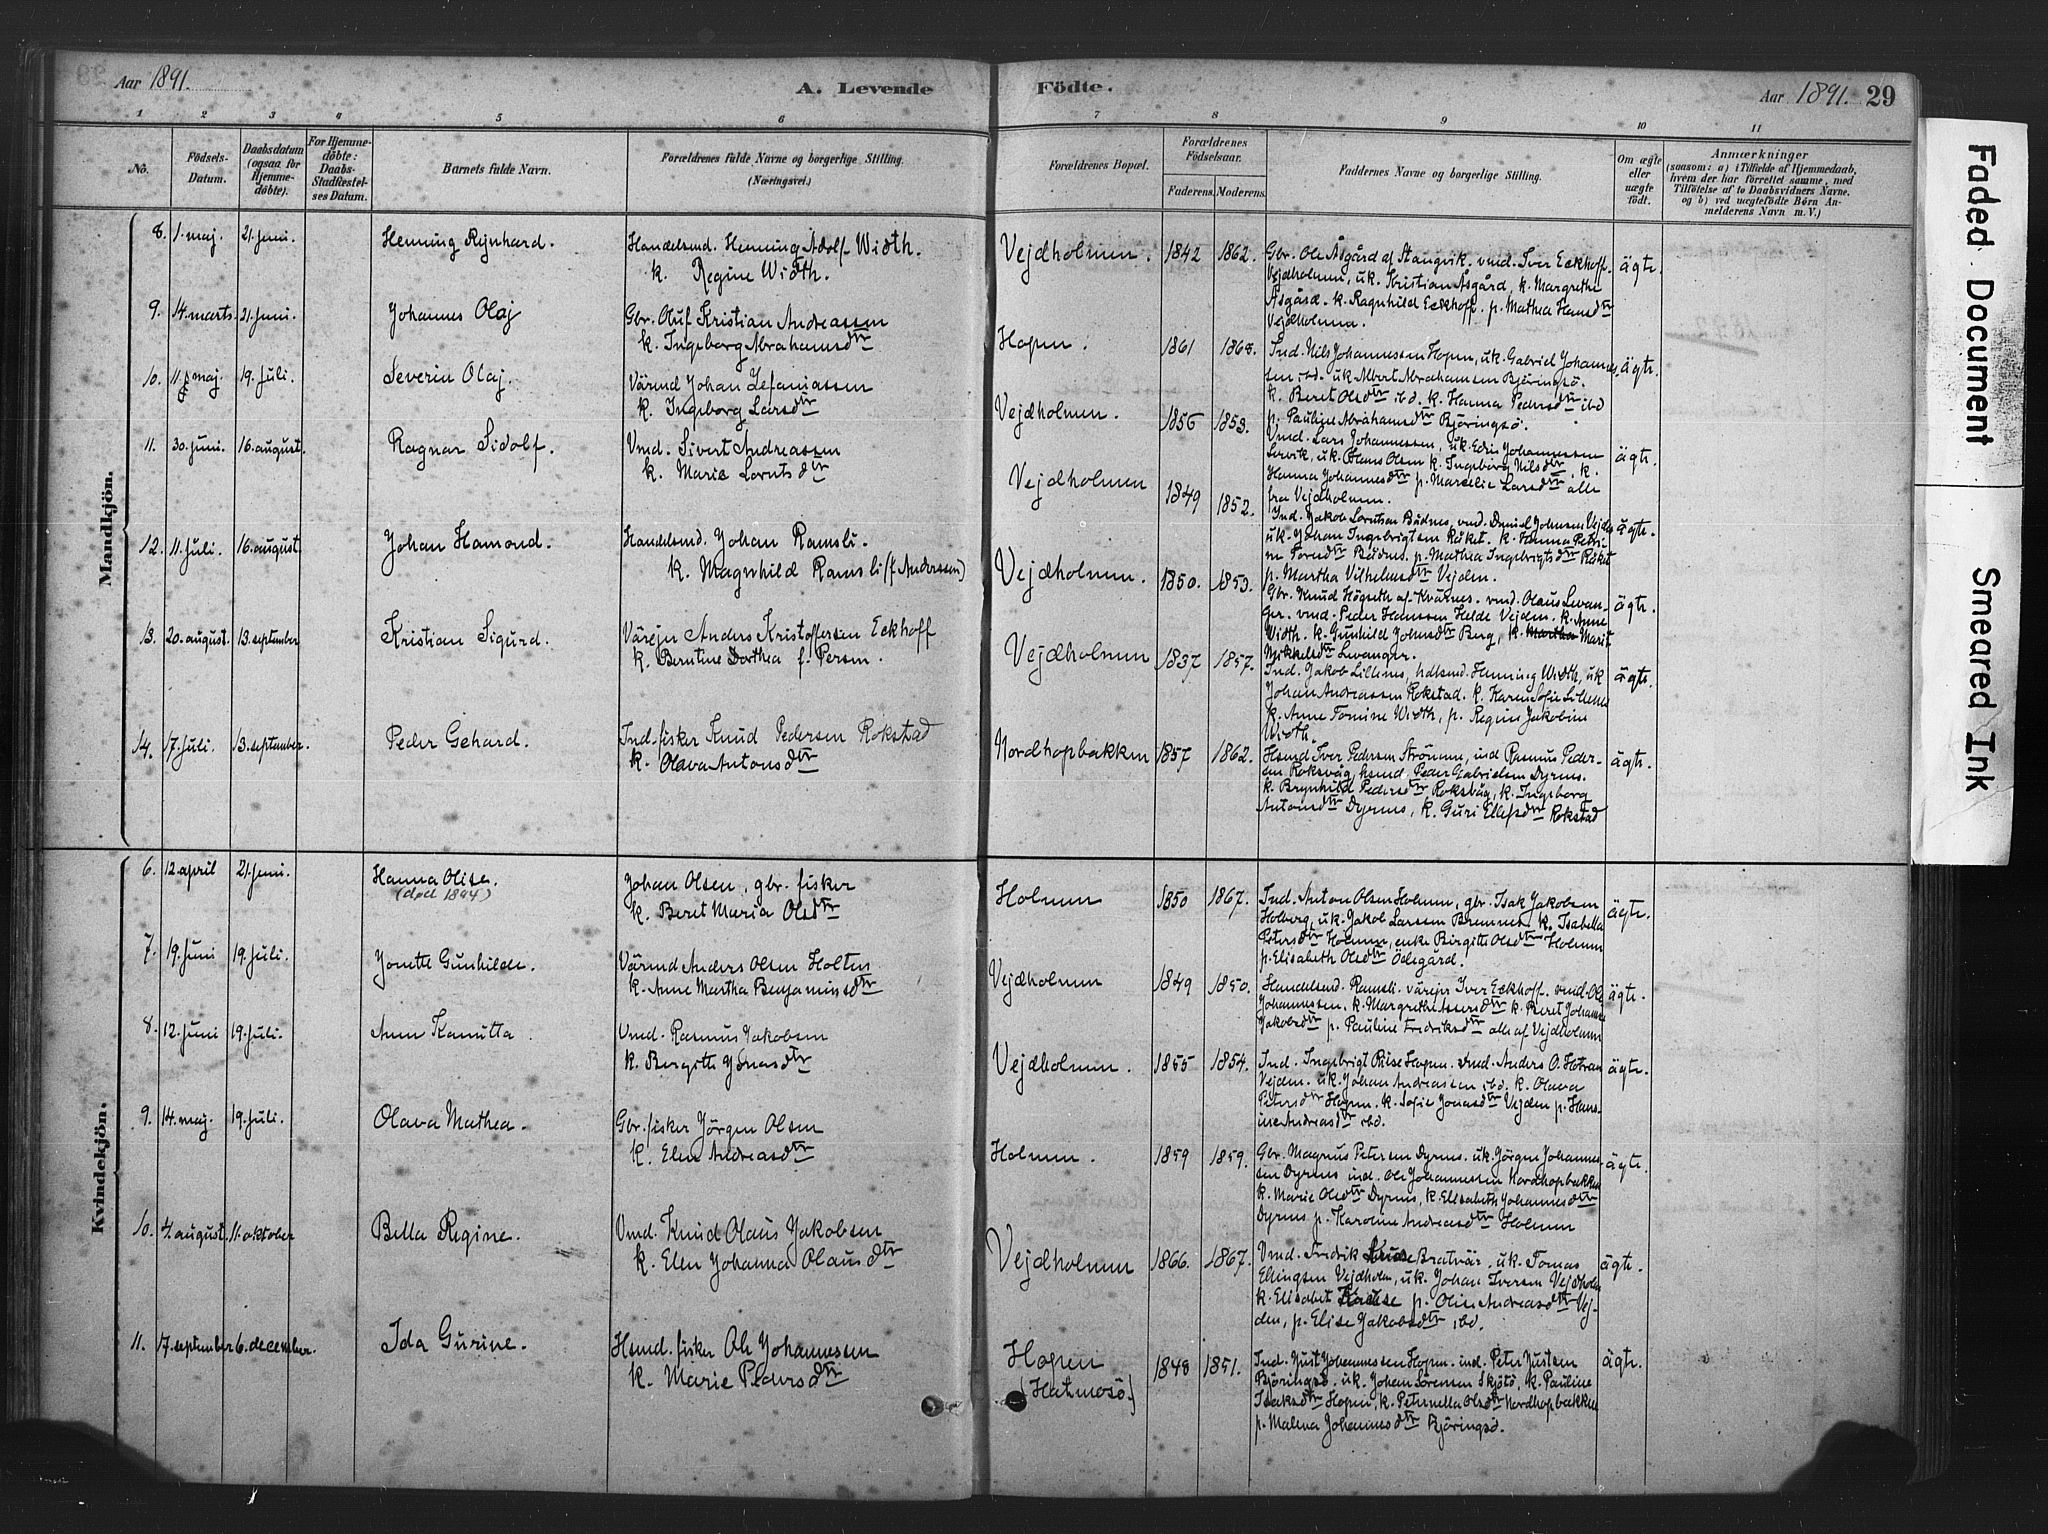 29
Aar 1891.
A. Levende Födte.
Aar 1891. 29
1 2 3 4 5 6 7 8 9 10 11
No.
Födsels-Datum.
Daabsdatum (ogsaa for Hjemmedöbte).
For Hjemmedöbte: Daabs-Stadfæstelses Datum.
Barnets fulde Navn.
Forældrenes fulde Navne og borgerlige Stilling. (Næringsvei.)
Forældrenes Bopæl.
Forældrenes Födselsaar.
Faderens. Moderens.
Faddernes Navne og borgerlige Stilling.
Om ægte eller uægte födt.
Anmærkninger
(saasom: a) i Tilfælde af Hjemmedaab, hvem der har forrettet samme, med Tilföielse af to Daabsvidners Navne, og b) ved uægtefödte Börn Anmelderens Navn m. V.)
Mandkjön.
8. 1. maj. 21. juni. Henning Rejnhard. Handelsmd. Henning Adolf Width. k. Regine Width. Vejdholmen. 1842 1862.
Gbr. Ole Åsgård af Stangvik. vmd. Iver Eckhoff.
Vejdholmen, uk. Kristian Åsgård, k. Margrethe
Åsgård. k. Ragnhild Eckhoff. p. Mathea Hansdtr
Vejdholmen. ägte.
9. 14. marts. 21. juni. Johannes Olaj Gbr. Oluf Kristian Andreassen k. Ingeborg Abrahamsdtr Hopen. 1861 1868.
Ind. Nils Johannessen Hopen, uk. Gabriel Johannes-
sen ibd. uk. Albert Abrahamsen Björingsö.
k. Beret Olsdtr ibd. k. Hanna Pedersdtr ibd
p. Pauline Abrahamsdtr Björingsö. ägte.
10. 11. maj. 19. juli. Severin Olaj. Värmd Johan Zefaniassen k. Ingeborg Larsdtr Vejdholmen. 1856 1853.
Vmd. Lars Johannessen, uk. Edin Johannessen
Lervik, uk. Olaus Olsen k. Ingeborg Nilsdtr, k.
Hanna Johannesdtr p. Marselie Larsdtr alle
fra Vejdholmen. ägte.
11. 30. juni. 16. august. Ragnar Sidolf. Vmd. Sivert Andreassen k. Marie Lorntsdtr Vejdholmen 1849 1852.
Ind. Jakob Lorntsen Budnes, vmd. Daniel Johnsen Vejden
uk. Johan Ingebrigtsen Röket. k. Hanna Petri-
p. Mathea Ingebrigtsdtr Röket
p. Martha Vilhelmsdtr Vejden. ägte.
12. 11. juli. 16. august Johan Hamond. Handelsmd. Johan Ramsli. k. Magnhild Ramsli (f. Anderssen) Vejdholmen. 1850. 1853.
Gbr. Knud Högseth af Kvärnes. vmd. Olaus Levan-
ger. vmd. Peder Hanssen Helde Vejden. k. Anne
Width. k. Gunhild Johnsdtr Berg, k. Martha Marit
Mikkelsdtr Levanger. ägte.
13. 20. august. 13. september Kristian Sigurd. Värejer Anders Kristoffersen Eckhoff k. Berntine Dorthea f. Persen. Vejdholmen 1837 1857.
Ind. Jakob Lillenes, hdlsmd. Henning Width, uk
Johan Andreassen Rokstad. k. Karen Sofie Lillenes
k. Anne Tomine Width, p. Regine Jakobine
Width. ägte.
14. 17. juli. 13. september. Peder Gehard. Ind. fisker Knud Pedersen Rokstad k. Olava Antonsdtr Nordhopbakken 1857 1862.
Hsmd Iver Pedersen Strömmen, ind Rasmus Peder-
sen Roksvåg, hsmd. Peder Gabrielsen Dyrnes.
k. Brynhild Pedersdtr Roksvåg, k. Ingeborg
Antonsdtr Dyrnes, k. Guri Ellefsdtr Rokstad ägte.
Kvindekjön.
6. 12. april 21. juni. Hanna Olise. (død 1894) Johan Olsen, gbr. fisker k. Beret Maria Olsdtr Holmen 1850 1867.
Ind. Anton Olsen Holmen, gbr. Isak Jakobsen
Holberg, uk. Jakob Larsen Bremnes k. Isabella
Petersdtr Holmen, enke Birgitte Olsdtr Holmen
p. Elisabeth Olsdtr Ödegård. ägte.
7. 19. juni 19. juli. Jonette Gunhilde. Värmd Anders Olsen Holten k. Anne Martha Benjaminsdtr Vejdholmen 1849 1850.
Handelsmd. Ramsli. värejer Iver Eckhoff. vmd. Ole
Johannessen, k. Margrethe k. Beret Johanne
Jakobsdtr p. Pauline Fredriksdtr alle af Vejdholmen ägte.
8. 12. juni 19. juli. Anne Kanutta. Vmd. Rasmus Jakobsen k. Bergitte Jonasdtr Vejdholmen. 1855 1854.
Ind. Ingebrigt Hopen. vmd. Anders O.
Vejden. uk. Johan Andreassen ibd. k. Olava
Petersdtr Hopen. k. Sofie Jonasdtr Vejden p. Hans-
ine Andreasdtr ibd. ägte.
9. 14. maj. 19. juli. Olava Mathea. Gbr. fisker Jörgen Olsen k. Elen Andreasdtr Holmen. 1859 1859.
Gbr. Magnus Petersen Dyrnes. uk. Jörgen Johannes-
sen Dyrnes ind. Ole Johannessen Nordhopbakken
k. Marie Olsdtr Dyrnes, k. Elisabeth Johannesdtr
Dyrnes p. Karoline Andreasdtr Holmen ägte.
10. 4. august. 11. oktober Bella Regine. Vmd. Knud Olaus Jakobsen k. Elen Johanna Olausdtr Vejdholmen 1866. 1867.
Vmd. Fredrik Bratvär. uk. Tomas
Ellingsen Vejdholm, uk. Johan Iversen Vejdholm
k. Elisabet p. Oline Andreasdtr Vej-
den, p. Elise Jakobsdtr ibd. ägte.
11. 17. september 6. december. Ida Gurine. Hsmd. fisker Ole Johannessen k. Marie Pedersdtr Hopen (Hatmosö.) 1848 1851.
Ind. Just Johannessen Hopen. ind. Peter Justsen
Björingsö. uk. Johan Sörensen Skjötö, k. Pauline
Isaksdtr Hopen, k. Peternella Olsdtr Nordhopbakken
p. Malena Johannesdtr Björingsö. ägte.
Faded Document
Smeared Ink